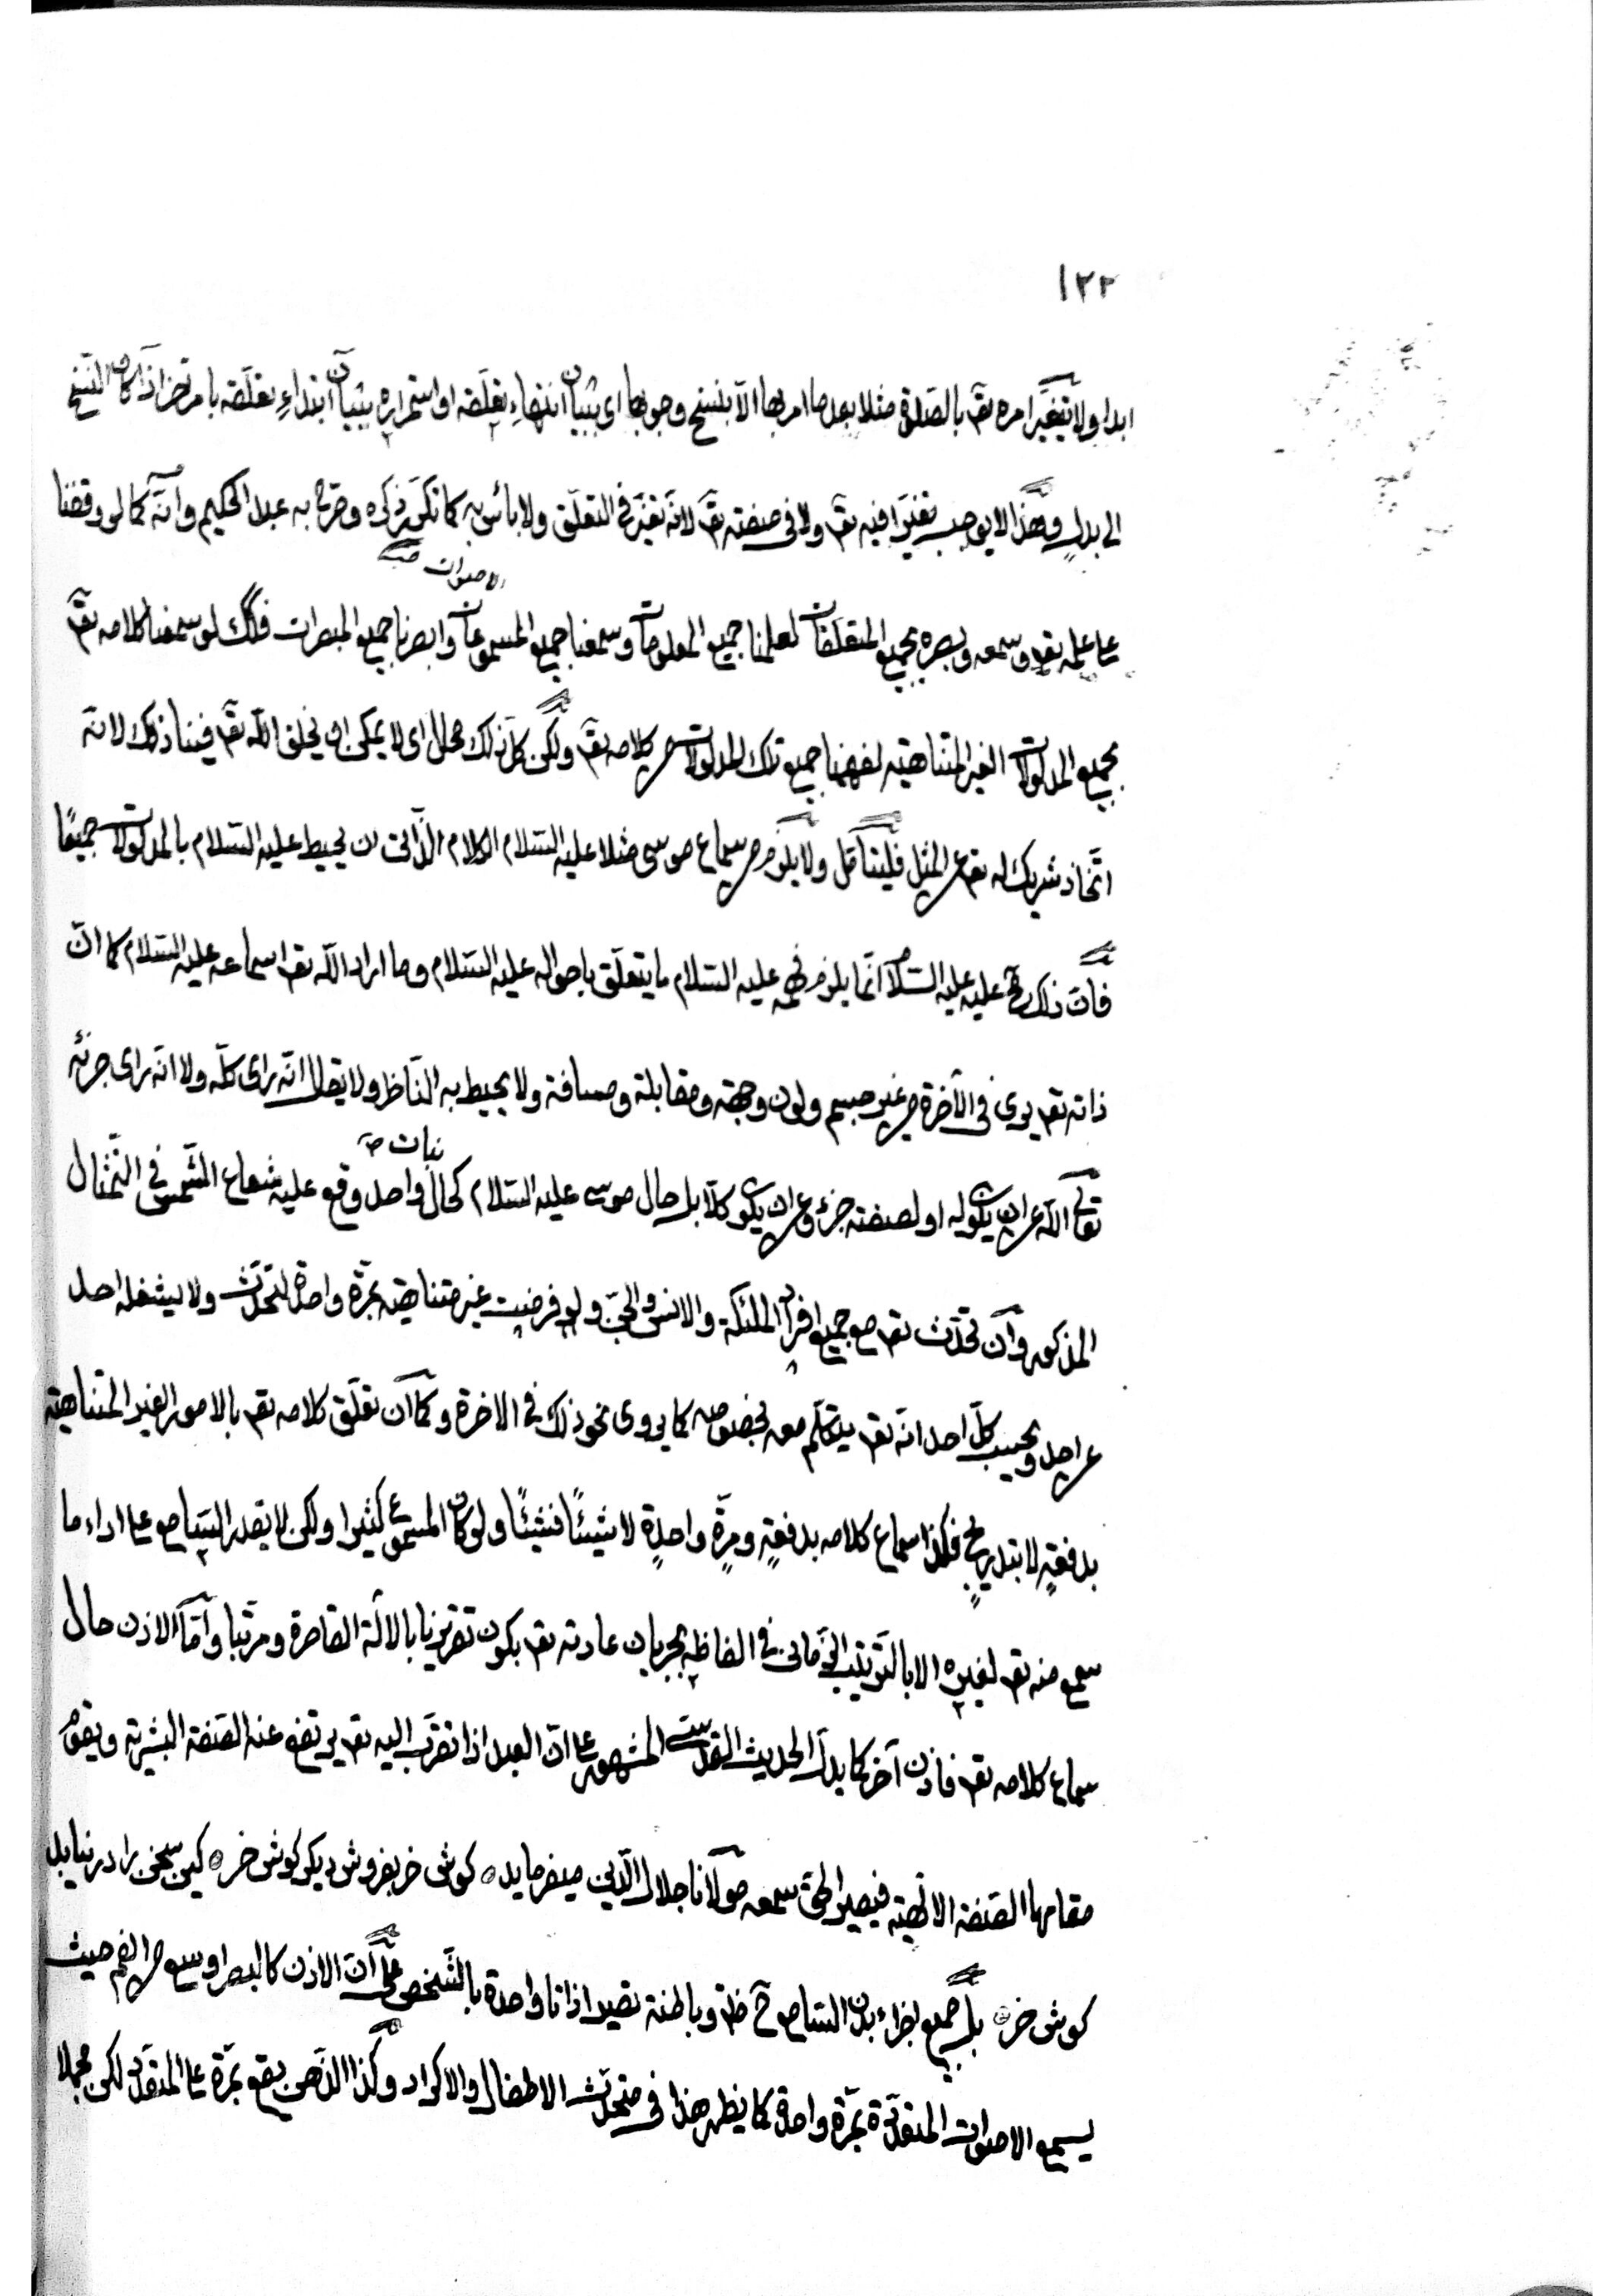 ١٢٢
ابدا ولا يتغير امره تع بالصلوة مثلا بعد ما امر بها الا بنسخ وجوبها اى ببيان انتهاء تعلقه او استمراره ببيان ابتداء تعلقه بامر آخر اذا كان النسخ
الى بدل وهذا لا يوجب تغيرا فيه تع ولا فى صفته تع لانه تغير فى التعلق ولا بأس به كما تكرر ذكره وصرح به عبد الحكيم وانه كما لو وقفنا
الاصوات صح
على علمه تع وسمعه وبصره بجميع المتعلقات لعلمنا جميع المعلومات وسمعنا جميع المسموعات وابصرنا جميع المبصرات فكذلك لو سمعنا كلامه تع
بجميع المدلولات الغير المتناهية لفهمنا جميع تلك المدلولات من كلامه تع ولكن كل ذلك محال اى لا يمكن ان يخلق الله تع فينا ذلك لانه
اتخاذ شريك له تع عن المثل فليتأمل ولا يلزم من سماع موسى مثلا عليه السلام الكلام الذاتى ان يحيط عليه السلام بالمدلولات جميعًا
فان ذلك مح عليه عليه السلام انما يلزم فهمه عليه السلام ما يتعلق باحواله عليه السلام وما اراد الله تع اسماعه عليه السلام كما ان
ذاته تع يرى فى الآخرة من غير جسم ولون وجهة ومقابلة ومسافة ولا يحيط به الناظر ولا يقال انه رأى كله ولا انه رأى جزئه
نبات صح
تعالى الله عن ان يكون له او لصفته جزء وعن ان يكون كلا بل حال موسى عليه السلام كحال واحد وقع عليه شعاع الشمس فى التمثال
المذكور وان تحدث تع مع جميع افراد الملئكة والانس والجن ولو فرضت غير متناهية بمرة واحدة لتحدث ولا يشغله احد
عن احد ويحسب كل احد انه تع يتكلم معه بخصوصه كما يروى نحو ذلك فى الاخرة وكما ان تعلق كلامه تع بالامور الغير المتناهية
بدفعةٍ لا بتدريج فكذا سماع كلامه بدفعةٍ ومرّةٍ واحدةٍ لا شيئًا فشيئًا ولو كان المسموع كثيرا ولكن لا يقدر السامع على اداء ما
سمع منه تع لغيره الا بالترتيب الزمانى فى الفاظه بجريان عادته تع بكون تقريرنا بالآلة القاصرة ومرتبا واما الاذن حال
سماع كلامه تع فاذن آخر كما يدل الحديث القدسى المشهور على ان العبد اذا تقرب اليه تع يرتفع عنه الصفة البشرية ويقوم
مقامها الصفة الالهية فيصير الحق سمعه مولانا جلال الدين ميفرمايد كوش خر بفروش ديكر كوش خر كين سخن را در نيابد
كوش خر بل جميع اجزاء بدن السامع ح ظه وباطنه تصير اذانا واحدة بالشخص على ان الاذن كالبصر اوسع من الفم حيث
يسمع الاصوات المتعددة بمرة واحدة كما يظهر هذا فى متحدث الاطفال والاكراد وكذا الذهن يقع بمرة على المتعدد لكن مجملا